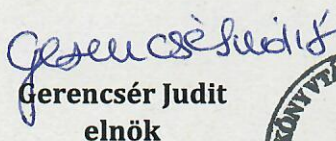 Gerencsér Judit
Gerencsér Judit
elnök
KÖNYVTÁ